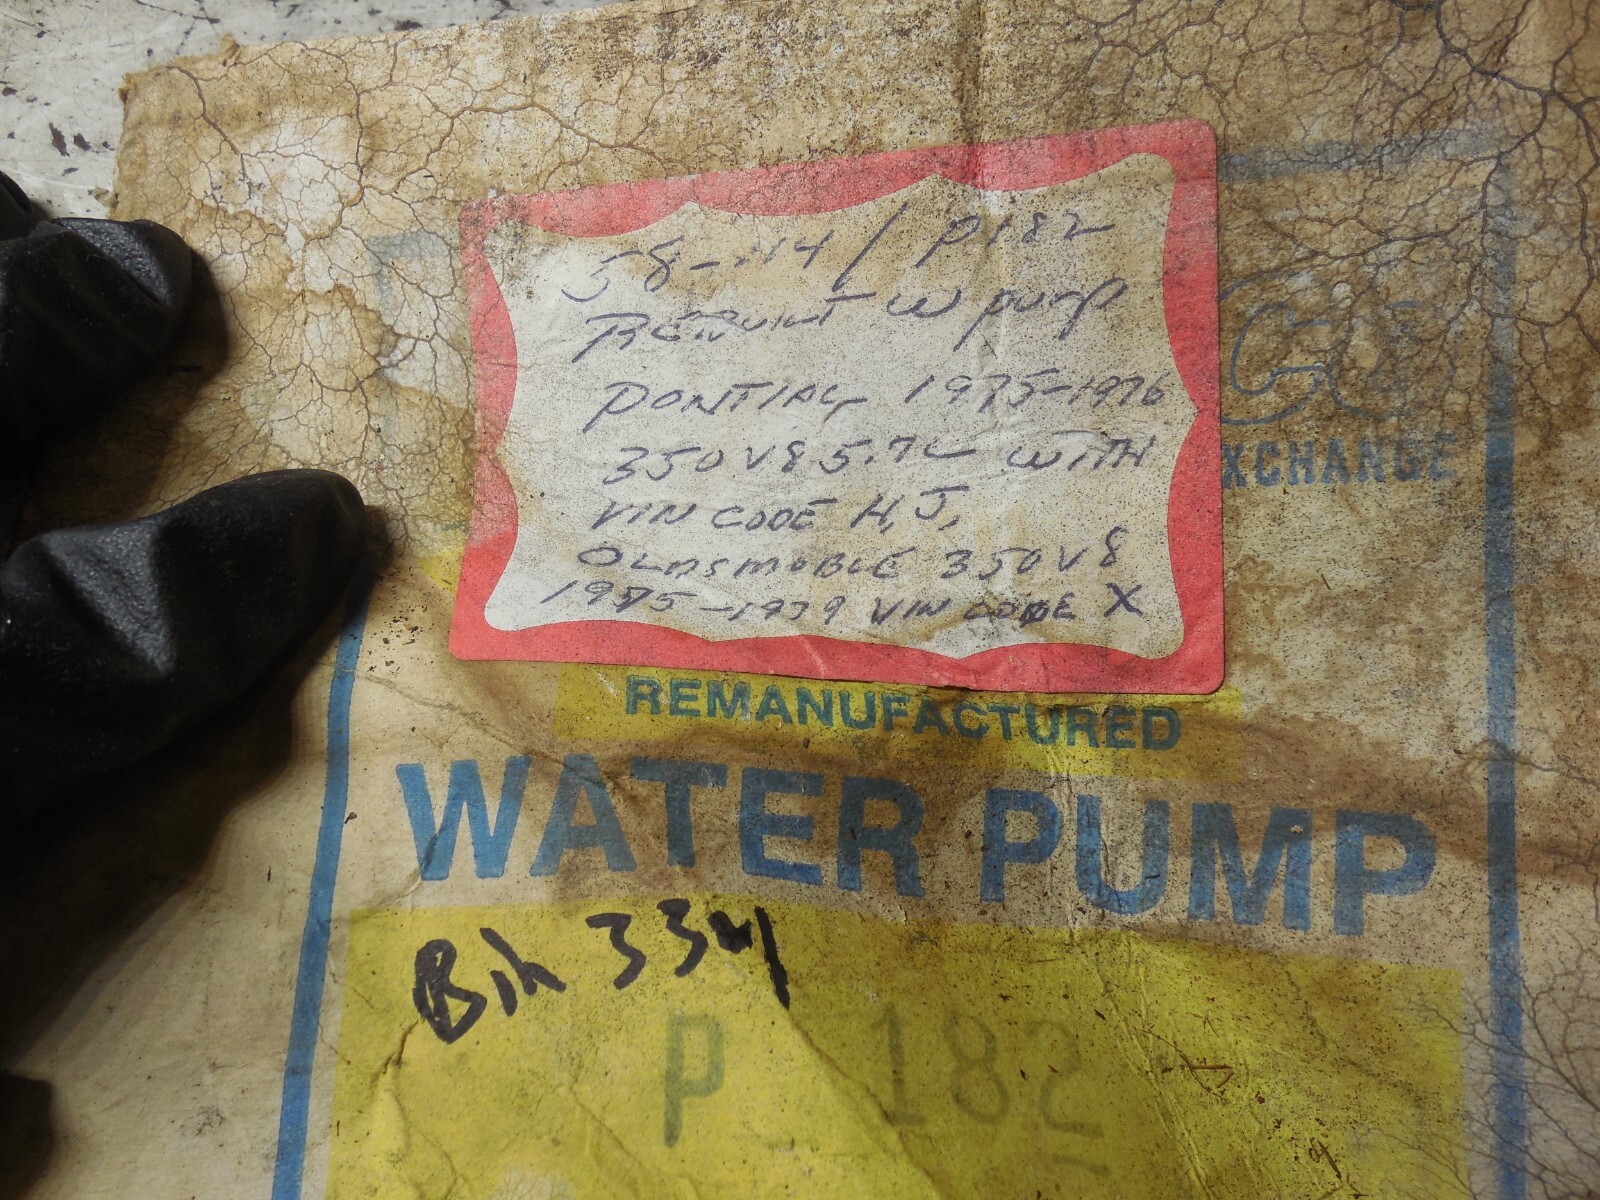 58-114 / P182
REBUILT W PUMP
PONTIAC 1975-1976
350 V8 5.7L WITH
VIN CODE H, J,
OLDSMOBLE 350 V8
1975-1979 VIN CODE X
XCHANGE
REMANUFACTURED
WATER PUMP
Bin 334
P 182